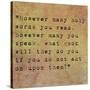 "However many holy
words you read,
however many you
speak, what good
will they do you
if you do not act
on upon them?"